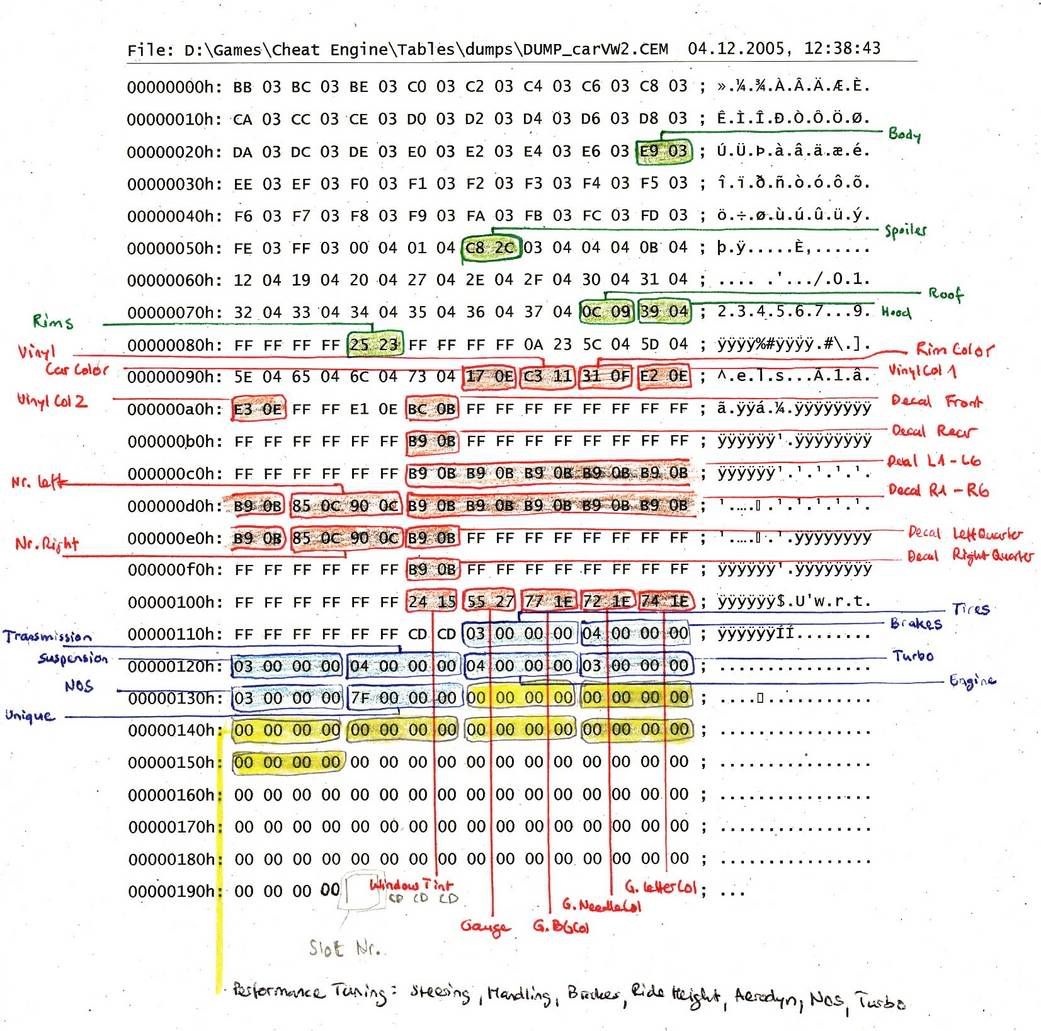 File: D:\Games\Cheat Engine\Tables\dumps\DUMP_carVW2.CEM 04.12.2005, 12:38:43
00000000h: BB 03 BC 03 BE 03 C0 03 C2 03 C4 03 C6 03 C8 03 ; ».¼.¾.À.Â.Ä.Æ.È.
00000010h: CA 03 CC 03 CE 03 D0 03 D2 03 D4 03 D6 03 D8 03 ; Ê.Ì.Î.Ð.Ò.Ô.Ö.Ø.
Body
00000020h: DA 03 DC 03 DE 03 E0 03 E2 03 E4 03 E6 03 E9 03 ; Ú.Ü.Þ.à.â.ä.æ.é.
00000030h: EE 03 EF 03 F0 03 F1 03 F2 03 F3 03 F4 03 F5 03 ; î.ï.ð.ñ.ò.ó.ô.õ.
00000040h: F6 03 F7 03 F8 03 F9 03 FA 03 FB 03 FC 03 FD 03 ; ö.÷.ø.ù.ú.û.ü.ý.
Spoiler
00000050h: FE 03 FF 03 00 04 01 04 C8 2C 03 04 04 04 0B 04 ; þ.ÿ.....È,......
00000060h: 12 04 19 04 20 04 27 04 2E 04 2F 04 30 04 31 04 ; .... .'.../.0.1.
Roof
00000070h: 32 04 33 04 34 04 35 04 36 04 37 04 0C 09 39 04 ; 2.3.4.5.6.7...9.
Hood
Rims
00000080h: FF FF FF FF 25 23 FF FF FF FF 0A 23 5C 04 5D 04 ; ÿÿÿÿ%#ÿÿÿÿ.#\.].
Vinyl
Rim Color
Car Color
00000090h: 5E 04 65 04 6C 04 73 04 17 0E C3 11 31 0F E2 0E ; ^.e.l.s...Ã.1.â.
Vinyl Col 1
Vinyl Col 2
000000a0h: E3 0E FF FF E1 0E BC 0B FF FF FF FF FF FF FF FF ; ã.ÿÿá.¼.ÿÿÿÿÿÿÿÿ
Decal Front
000000b0h: FF FF FF FF FF FF B9 0B FF FF FF FF FF FF FF FF ; ÿÿÿÿÿÿ¹.ÿÿÿÿÿÿÿÿ
Decal Rear
000000c0h: FF FF FF FF FF FF B9 0B B9 0B B9 0B B9 0B B9 0B ; ÿÿÿÿÿÿ¹.¹.¹.¹.¹.
Decal L1-L6
Nr. Left
000000d0h: B9 0B 85 0C 90 0C B9 0B B9 0B B9 0B B9 0B B9 0B ; ¹.….▯.¹.¹.¹.¹.¹.
Decal R1-R6
Nr. Right
000000e0h: B9 0B 85 0C 90 0C B9 0B FF FF FF FF FF FF FF FF ; ¹.….▯.¹.ÿÿÿÿÿÿÿÿ
Decal Left Quarter
Decal Right Quarter
000000f0h: FF FF FF FF FF FF B9 0B FF FF FF FF FF FF FF FF ; ÿÿÿÿÿÿ¹.ÿÿÿÿÿÿÿÿ
00000100h: FF FF FF FF FF FF 24 15 55 27 77 1E 72 1E 74 1E ; ÿÿÿÿÿÿ$.U'w.r.t.
Tires
Brakes
00000110h: FF FF FF FF FF FF CD CD 03 00 00 00 04 00 00 00 ; ÿÿÿÿÿÿÍÍ........
Transmission
Suspension
00000120h: 03 00 00 00 04 00 00 00 04 00 00 00 03 00 00 00 ; ................
Turbo
NOS
Engine
00000130h: 03 00 00 00 7F 00 00 00 00 00 00 00 00 00 00 00 ; ....▯...........
Unique
00000140h: 00 00 00 00 00 00 00 00 00 00 00 00 00 00 00 00 ; ................
00000150h: 00 00 00 00 00 00 00 00 00 00 00 00 00 00 00 00 ; ................
00000160h: 00 00 00 00 00 00 00 00 00 00 00 00 00 00 00 00 ; ................
00000170h: 00 00 00 00 00 00 00 00 00 00 00 00 00 00 00 00 ; ................
00000180h: 00 00 00 00 00 00 00 00 00 00 00 00 00 00 00 00 ; ................
00000190h: 00 00 00 00 ; ...
Window Tint
CD CD CD
G. LetterCol
G. NeedleCol
Gauge
G. BGCol
Slot Nr.
Performance Tuning: Steering, Handling, Brakes, Ride Height, Aerodyn, NOS, Turbo